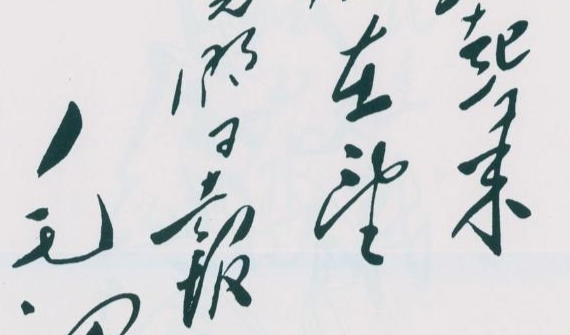 起来
在望
明日報
毛